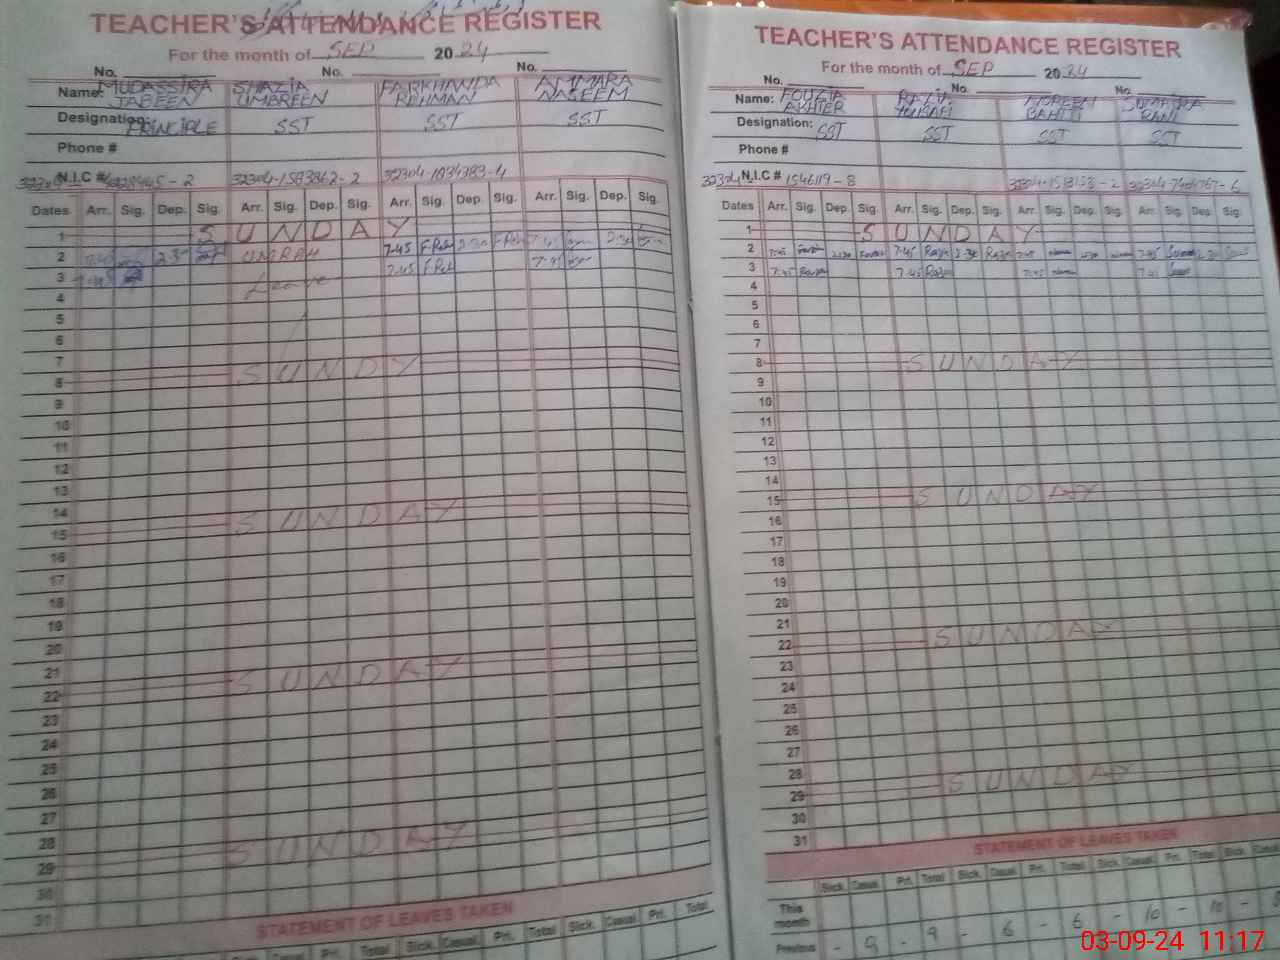 TEACHER'S ATTENDANCE REGISTER
For the month of SEP 2024
No. No. No.
Name: MUDASSIRA JABEEN SHAZIA UMBREEN FARKHANDA REHMAN AMMARA NASEEM
Designation: PRINCIPLE SST SST SST
Phone #
N.I.C # 32304-1583862-2 32304-1834383-4
Dates Arr. Sig. Dep. Sig. Arr. Sig. Dep. Sig. Arr. Sig. Dep. Sig. Arr. Sig. Dep. Sig.
1 SUNDAY
2 7:45 2:30 UMRAH 7:45 F.Reh 2:30 F.Reh 7:45 2:30
3 7:45 Leave 7:45 F.Reh 7:45
4
5
6
7
8 SUNDY
9
10
11
12
13
14
15 SUNDAY
16
17
18
19
20
21
22 SUNDAY
23
24
25
26
27
28
29 SUNDAY
30
31
STATEMENT OF LEAVES TAKEN
Total Sick. Casual Pri. Total Sick. Casual Pri. Total
TEACHER'S ATTENDANCE REGISTER
For the month of SEP 2024
No. No. No.
Name: FOUZIA AKHTER RAZIA NOREEN SUMAIRA RANI
Designation: SST SST SST SST
Phone #
N.I.C # 32304 1546119-8
Dates Arr. Sig. Dep. Sig. Arr. Sig. Dep. Sig. Arr. Sig. Dep. Sig. Arr. Sig. Dep Sig.
1 SUNDAY
2 7:45 2:30 7:45 2:30 7:45 2:30 7:45 2:30
3 7:45 7:45 7:45 7:45
4
5
6
7
8 SUNDAY
9
10
11
12
13
14
15 SUNDAY
16
17
18
19
20
21
22 SUNDAY
23
24
25
26
27
28
29 SUNDAY
30
31
STATEMENT OF LEAVES TAKEN
Sick. Casual Pri. Total Sick. Casual Pri. Total Sick. Casual Pri. Total Sick. Casual
This month
Previous - 9 - 9 - 6 - 6 - 10 - 10 -
03-09-24 11:17